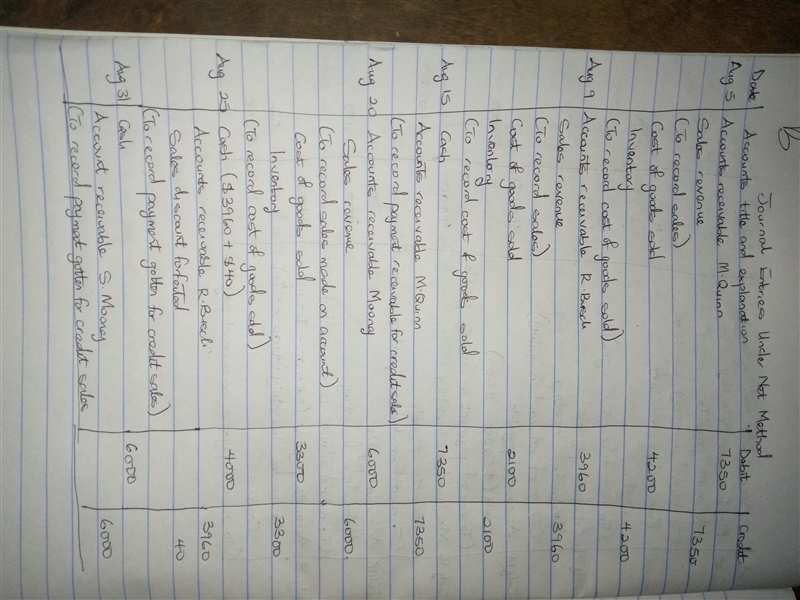 B
Journal Entries Under Net Method
Date Accounts title and explanation Debit Credit
Aug 5 Accounts receivable M. Quinn 7350
Sales revenue 7350
(To record sales)
Cost of goods sold 4200
Inventory 4200
(To record cost of goods sold)
Aug 9 Accounts receivable R. Busch 3960
Sales revenue 3960
(To record sales)
Cost of goods sold 2100
Inventory 2100
(To record cost of goods sold
Aug 15 Cash 7350
Accounts receivable M. Quinn 7350
(To record payment receivable for credit sales)
Aug 20 Accounts receivable Mooney 6000
Sales revenue 6000
(To record sales made on account)
Cost of goods sold 3300
Inventory 3300
(To record cost of goods sold)
Aug 25 Cash ($3960 + $40) 4000
Accounts receivable R. Busch 3960
Sales discount forfeited 40
(To record payment gotten for credit sales)
Aug 31 Cash 6000
Account receivable S. Mooney 6000
(To record payment gotten for credit sales